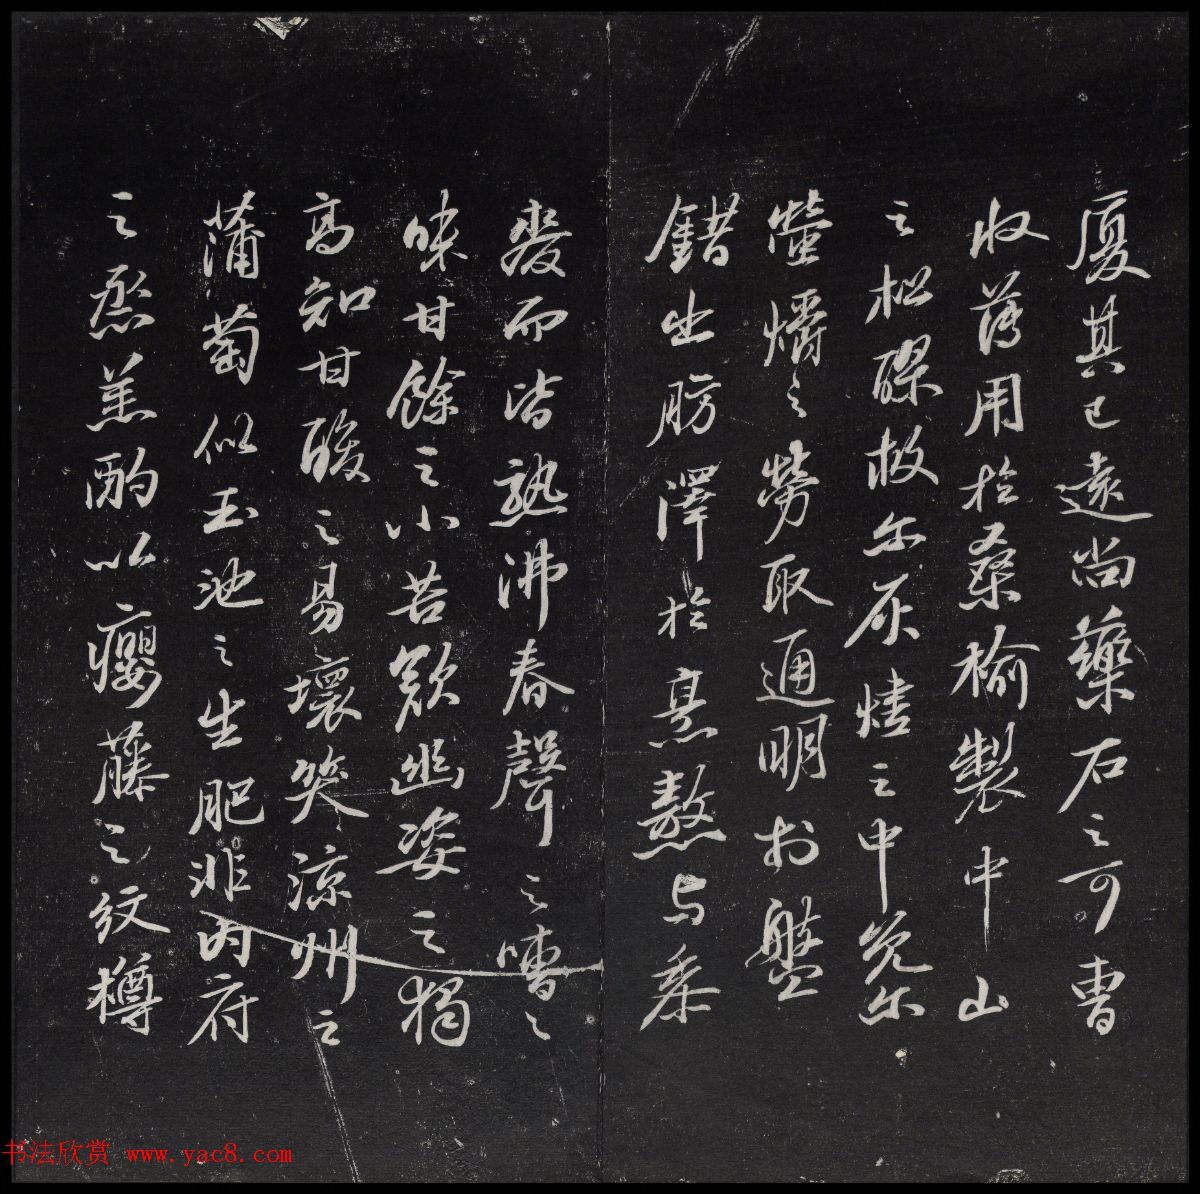 廈其已遠尚藥石之可曹
收薄用於桑榆製中山
之松醪救尔灰燼之中免尔
螢爝之勞取通明於盤
錯出肪澤於烹熬与黍
麥而皆熟沸春聲之嘈々
味甘餘之小苦歎幽姿之獨
高知甘酸之易壞笑涼州之
蒲萄似玉池之生肥非內府
之烝羔酌以癭藤之紋樽
书法欣赏 www.yac8.com